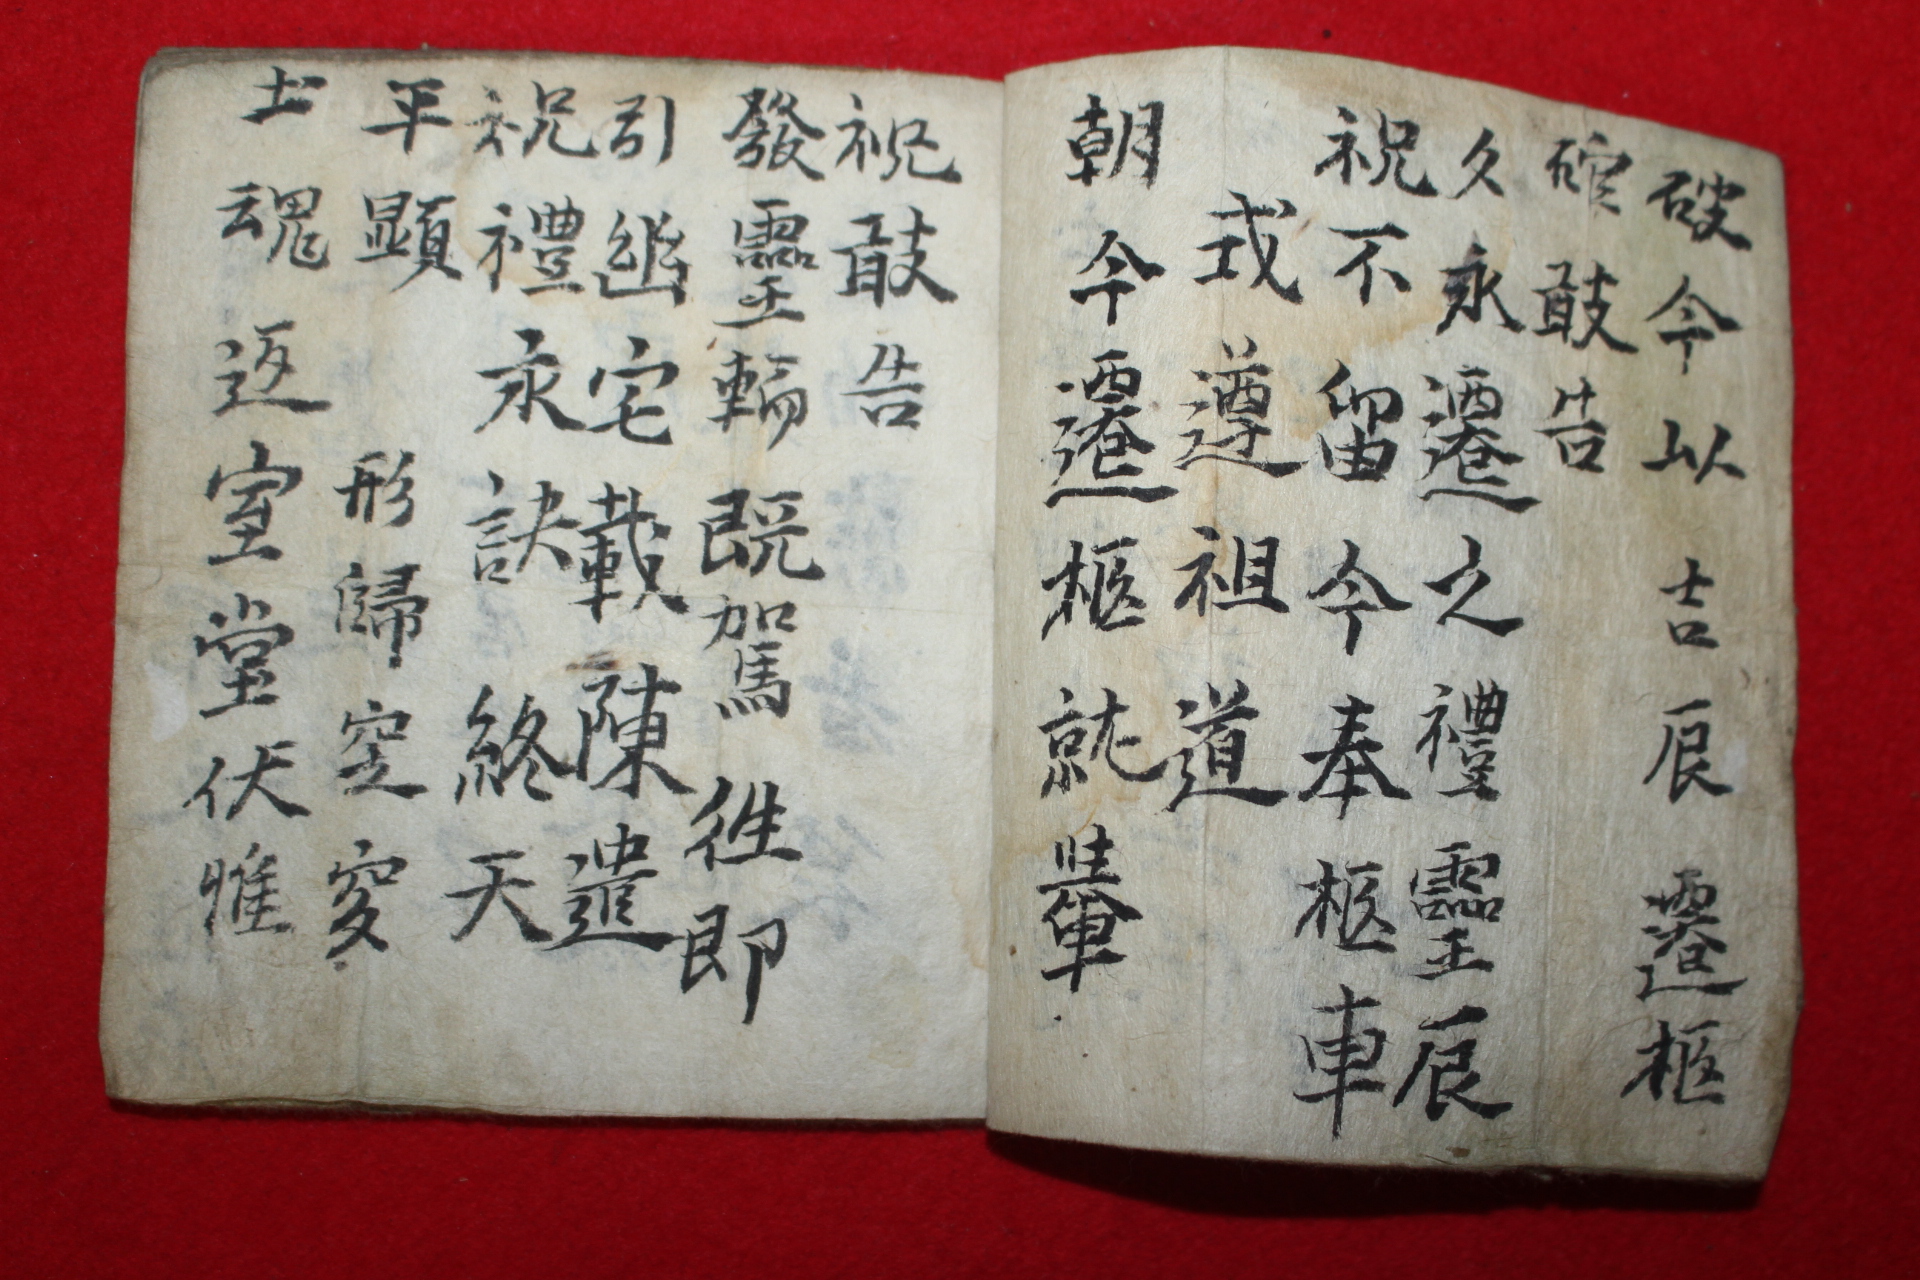 破今以吉辰遷柩
敢告
久永遷之禮靈辰
祝不留今奉柩車
式遵祖道
朝今遷柩就轝
祝敢告
發靈輀既駕徃即
引幽宅載陳遣
祝禮永訣終天
平顯 形歸窀穸
土魂返室堂伏惟